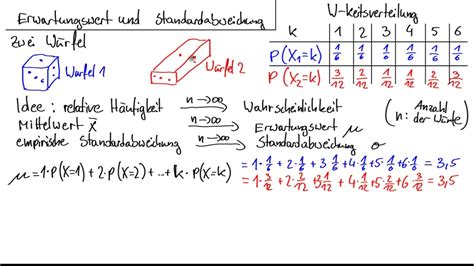 Erwartungswert und Standardabweichung
W-keitsverteilung
zwei Würfel
Würfel 1
Würfel 2
k 1 2 3 4 5 6
P(X₁=k) 1/6 1/6 1/6 1/6 1/6 1/6
P(X₂=k) 3/12 2/12 1/12 1/12 2/12 3/12
Idee: relative Häufigkeit n→∞ Wahrscheinlichkeit
Mittelwert x̄ n→∞ Erwartungswert μ
empirische Standardabweichung n→∞ Standardabweichung σ
(n: Anzahl der Würfe)
μ=1·P(X=1)+2·P(X=2)+...+k·P(X=k)
=1·1/6+2·1/6+3·1/6+4·1/6+5·1/6+6·1/6=3,5
=1·3/12+2·2/12+3·1/12+4·1/12+5·2/12+6·3/12=3,5